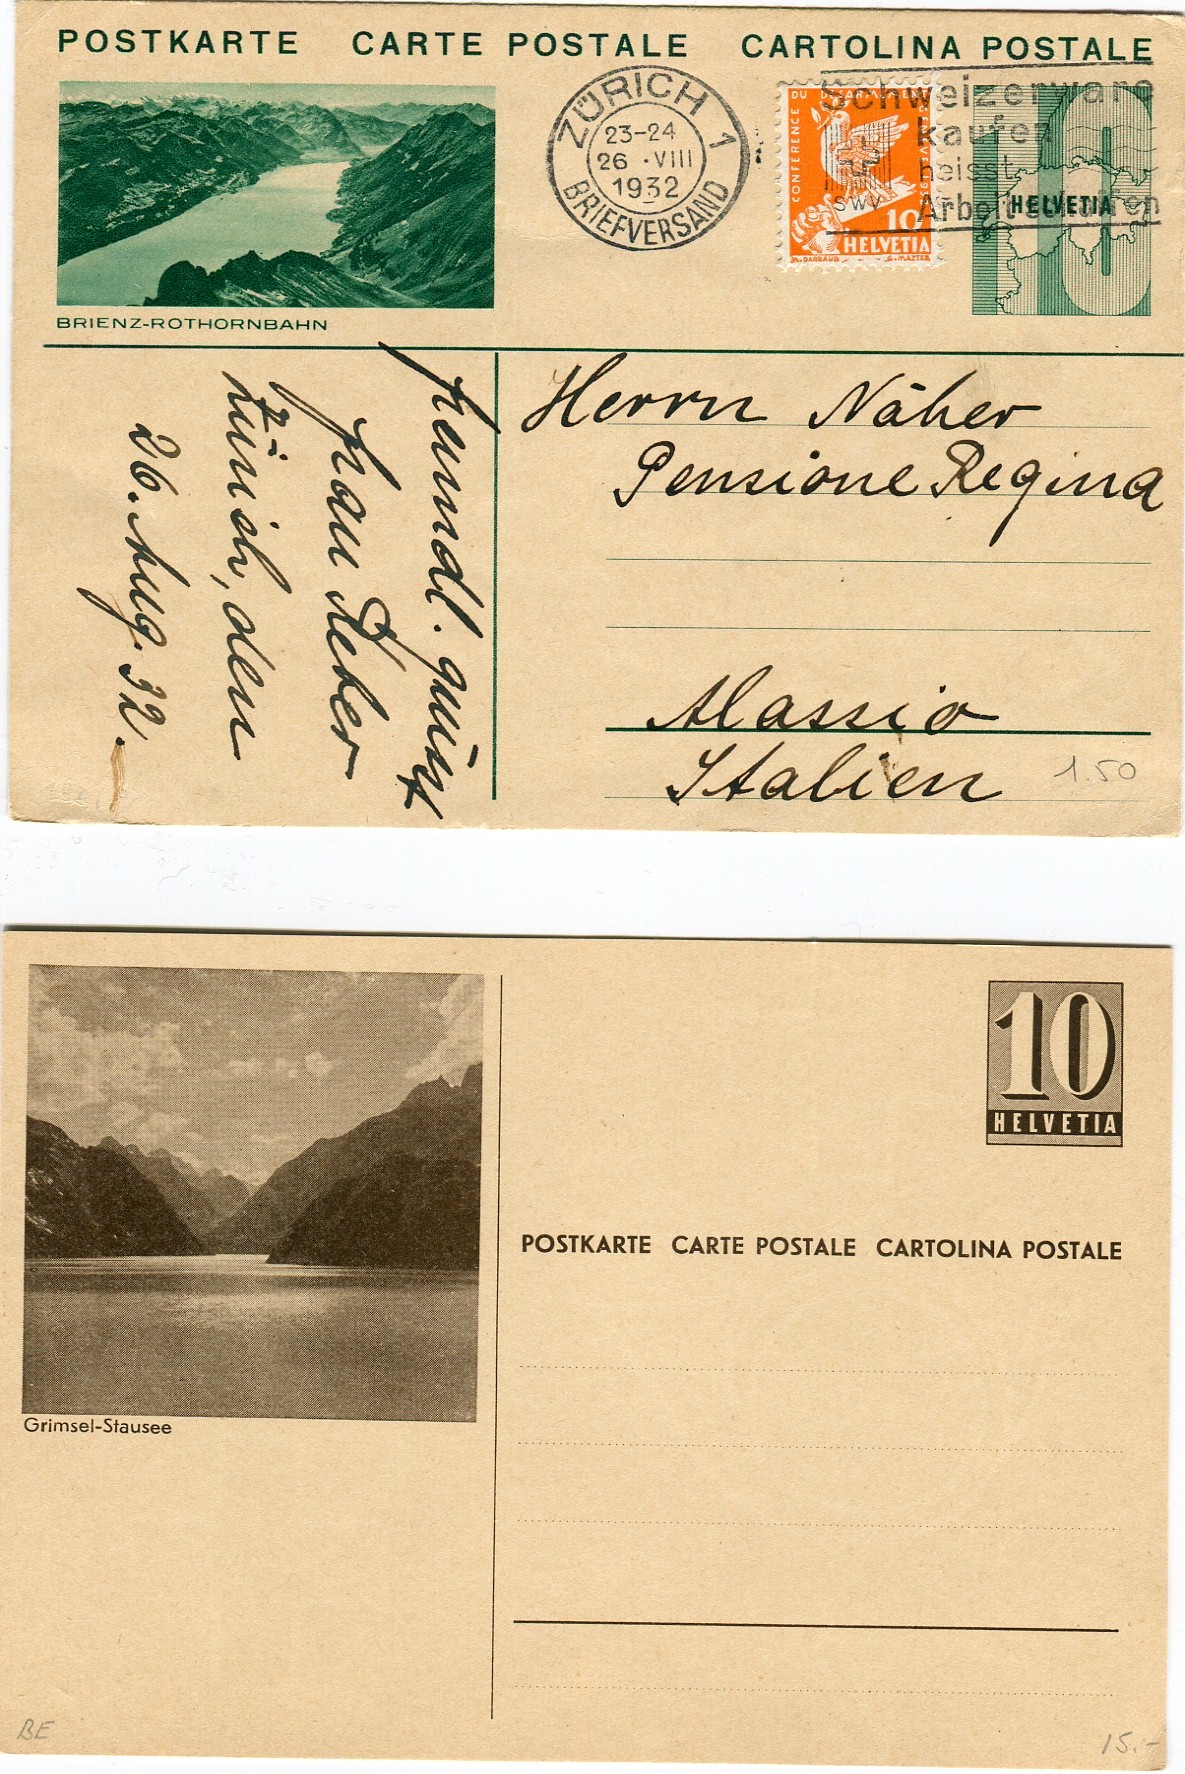 POSTKARTE CARTE POSTALE CARTOLINA POSTALE
BRIENZ-ROTHORNBAHN
ZÜRICH 1
23-24
26 · VIII
1932
BRIEFVERSAND
CONFERENCE DU DESARMEMENT
SWV
10
HELVETIA
M. BARRAUD
G. MATTER
Schweizerware
kaufen
heisst
HELVETIA
Herrn Näher
Pensione Regina
Alassio
Italien
1.50
Frau
Zürich, den
26. Aug. 32.
Grimsel-Stausee
10
HELVETIA
POSTKARTE CARTE POSTALE CARTOLINA POSTALE
BE
15.-